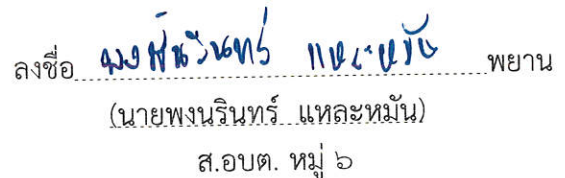 ลงชื่อ พงศ์นรินทร์ แหละหมัน พยาน
(นายพงนรินทร์ แหละหมัน)
ส.อบต. หมู่ ๖